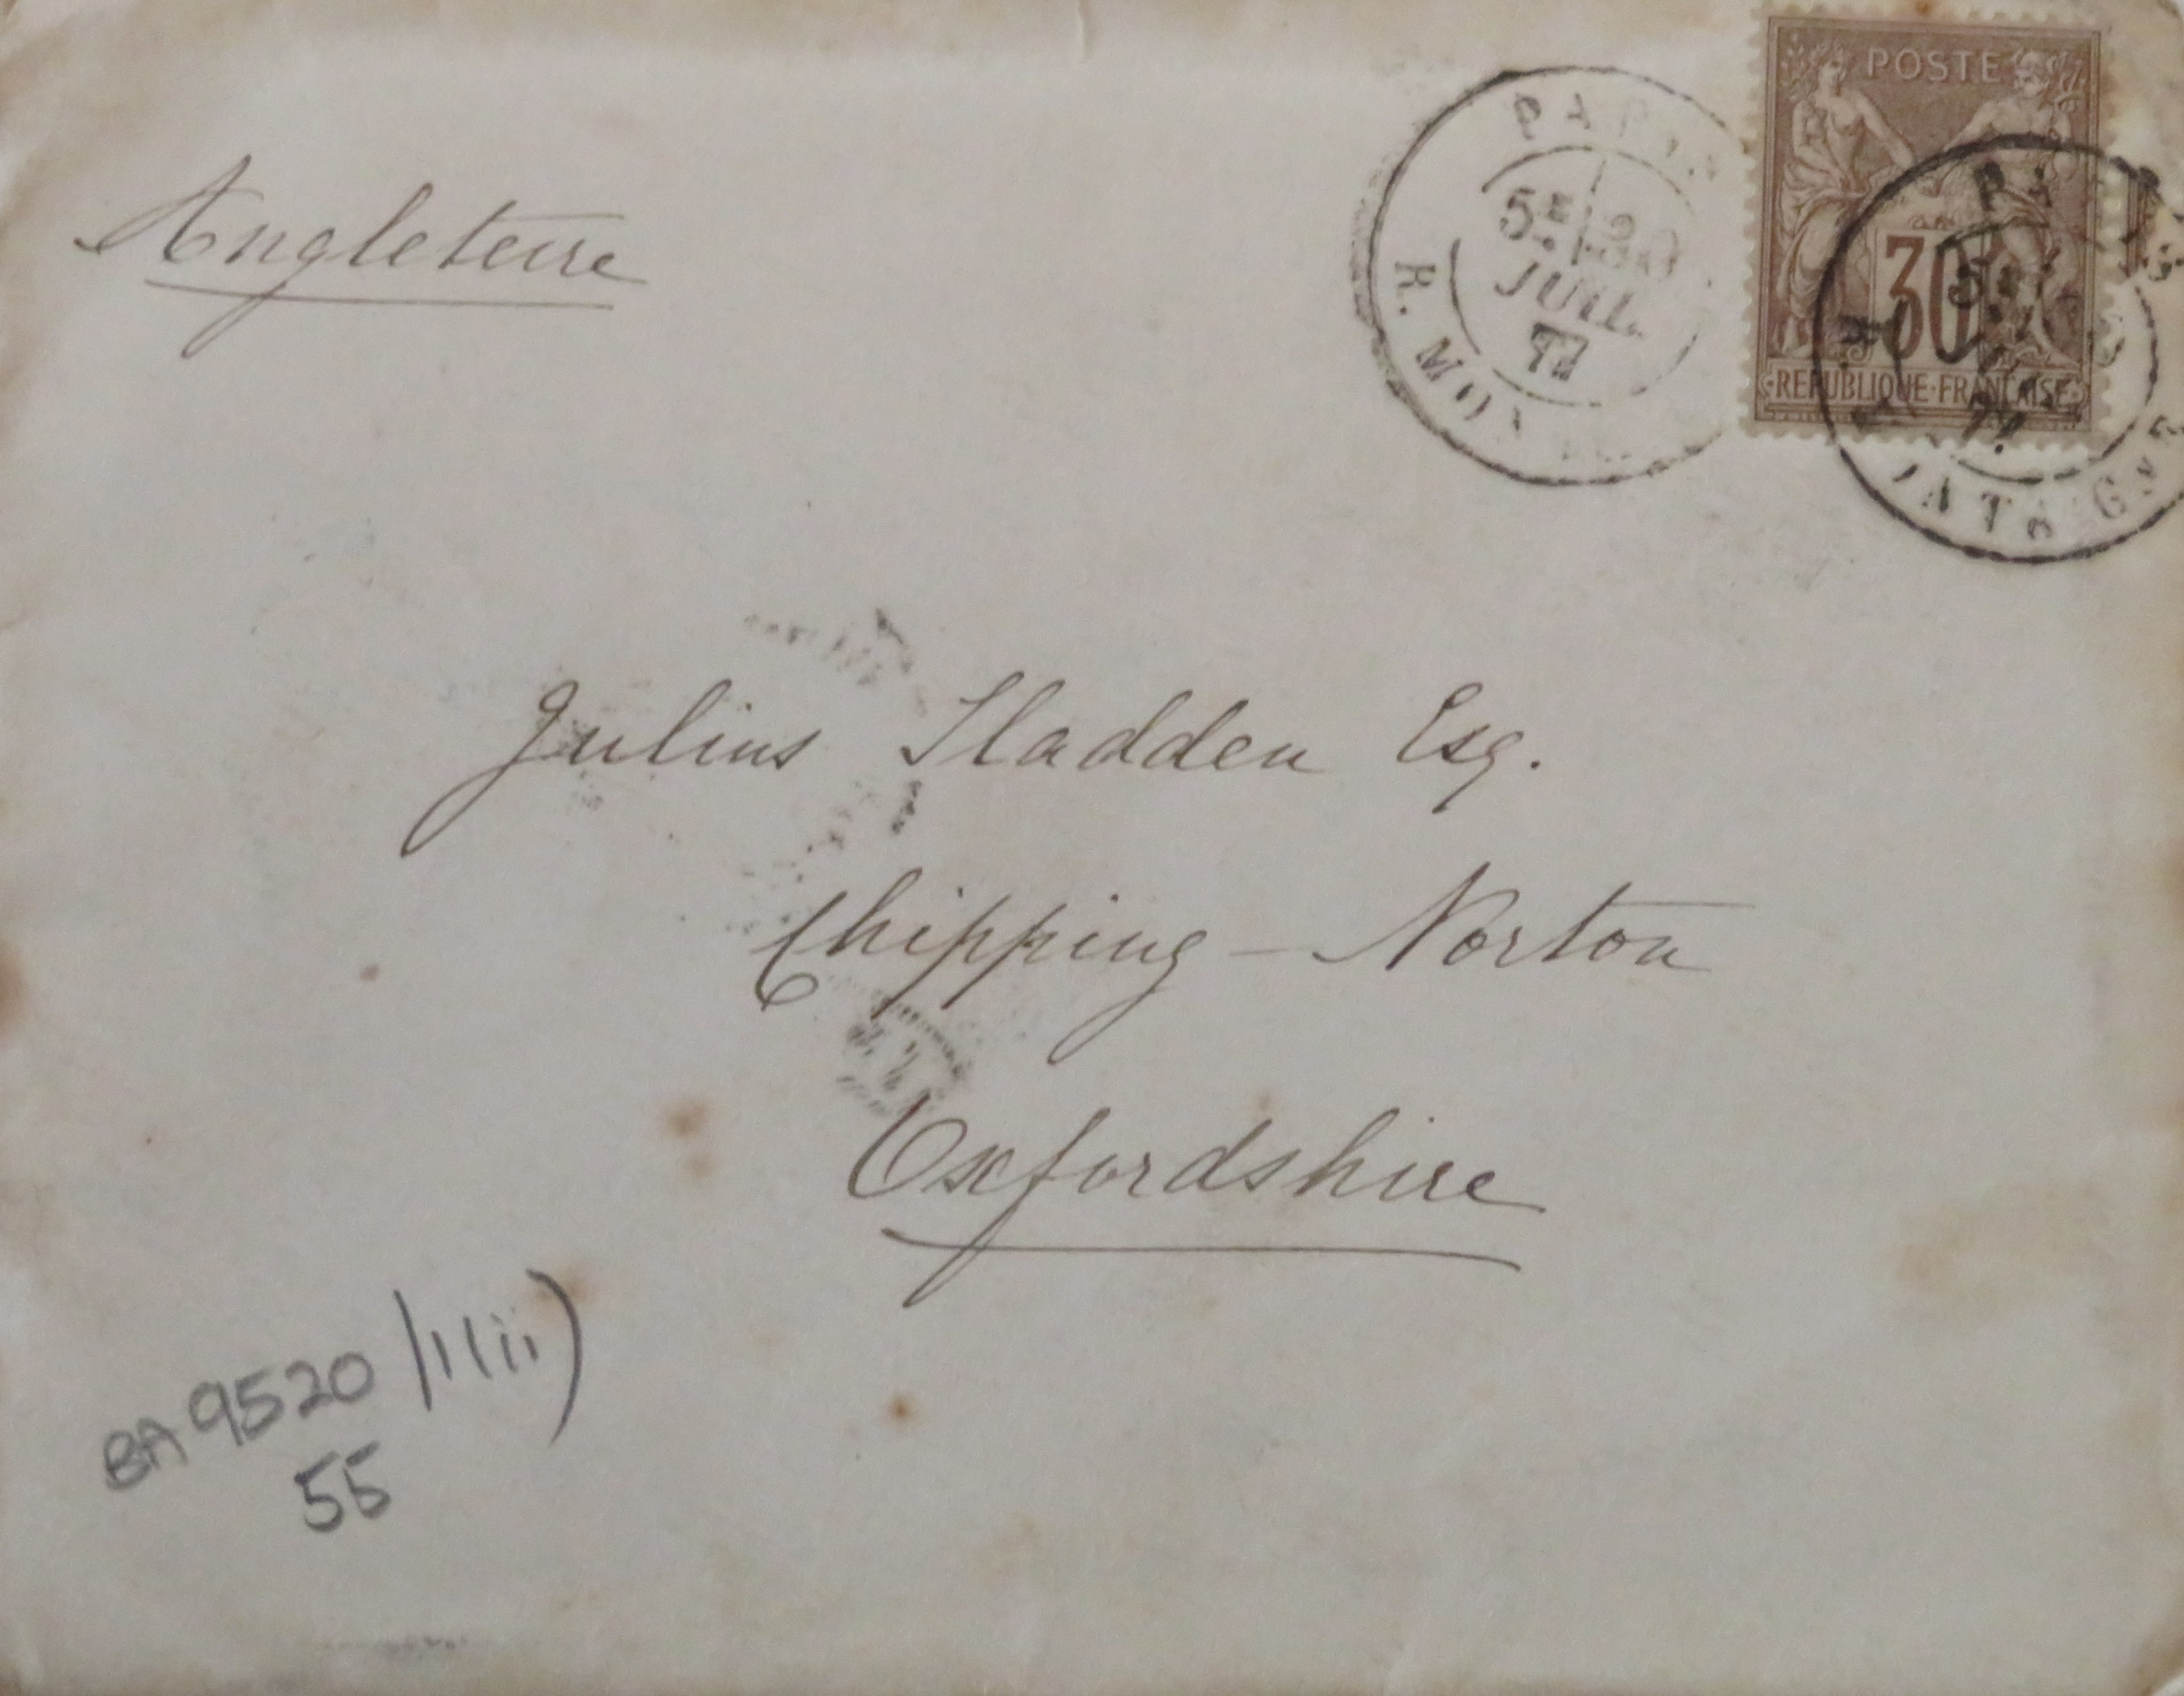 Angleterre
PARIS
5E 20
JUIL.
77
R. MON
POSTE
30
REPUBLIQUE·FRANCAISE
PARIS
Julius Sladden Esq.
Chipping - Norton
Oxfordshire
BA 9520
55